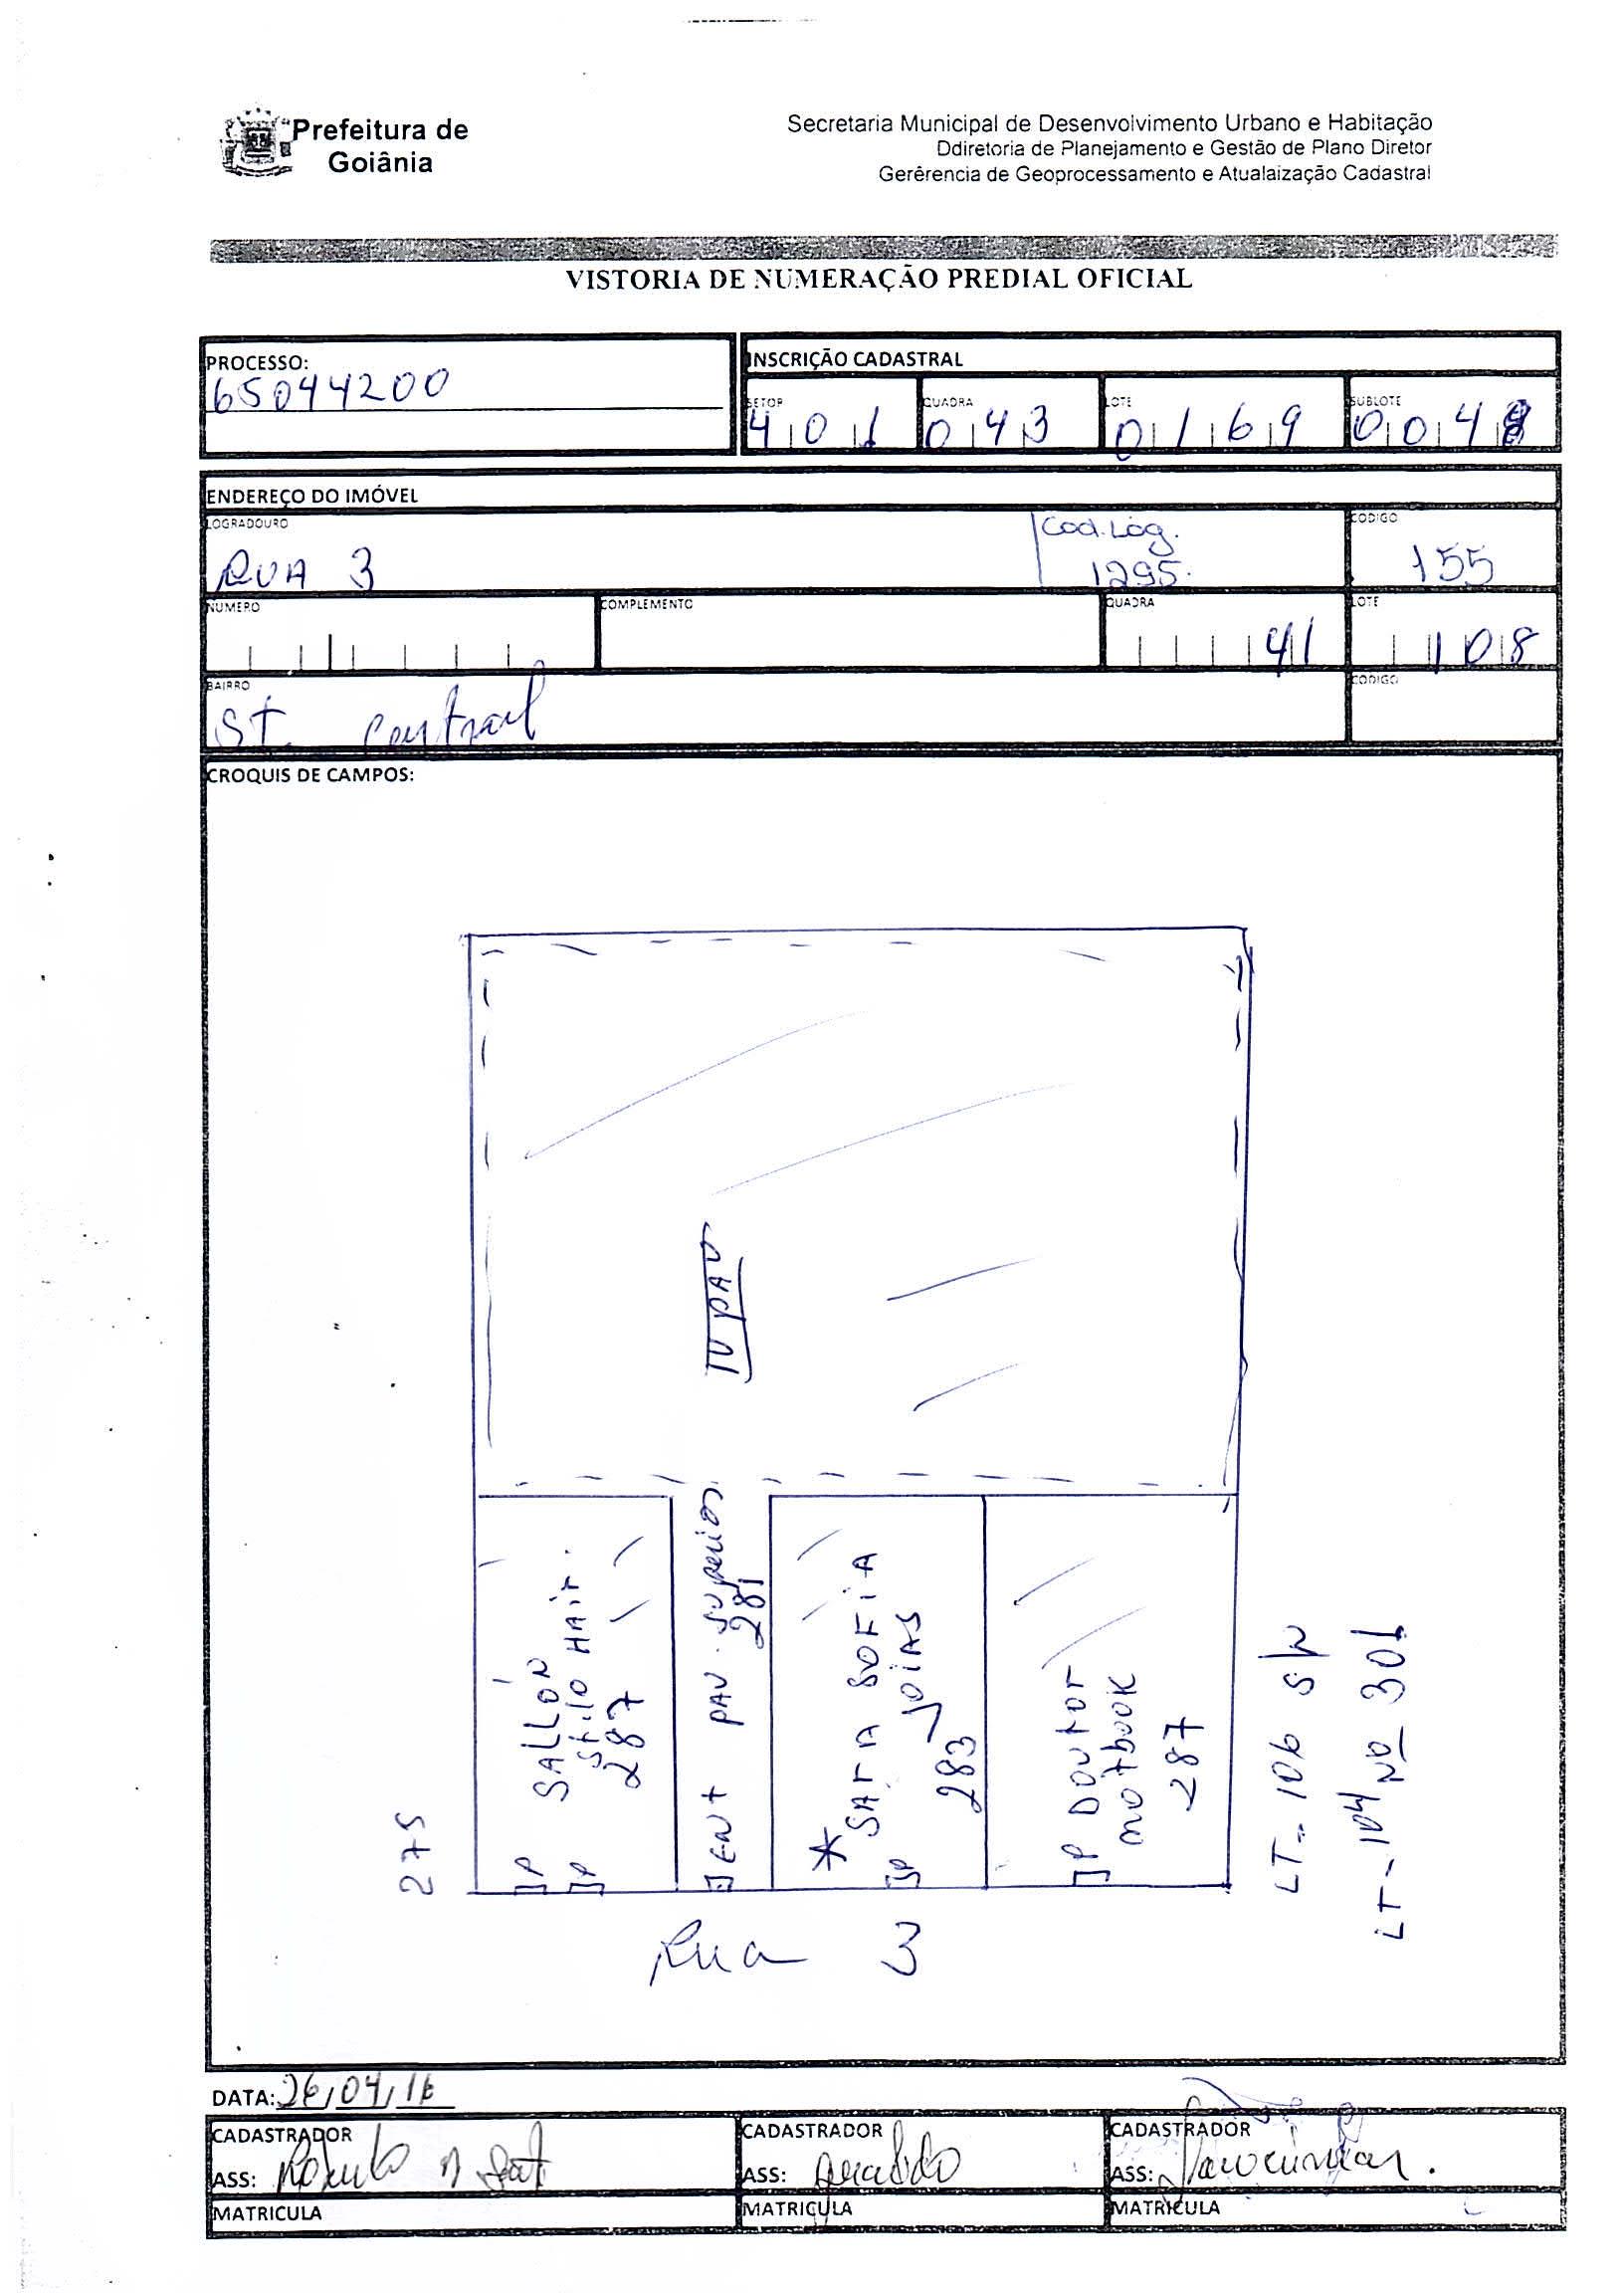 Prefeitura de
Goiânia
Secretaria Municipal de Desenvolvimento Urbano e Habitação
Ddiretoria de Planejamento e Gestão de Plano Diretor
Gerêrencia de Geoprocessamento e Atualaização Cadastral
VISTORIA DE NUMERAÇÃO PREDIAL OFICIAL
PROCESSO:
65044200
INSCRIÇÃO CADASTRAL
SETOR QUADRA LOTE SUBLOTE
401 043 0169 004
ENDEREÇO DO IMÓVEL
LOGRADOURO Cod. Log. CODIGO
RUA 3 1295 155
NUMERO COMPLEMENTO QUADRA LOTE
41 108
BAIRRO CODIGO
ST. Central
CROQUIS DE CAMPOS:
PAV
275
SALLÓN
Stilo HAir.
287
ENT PAV. Superior
281
* SARA SOFIA
JOIAS
283
P DOUTOR
notbook
287
LT- 106 S/N
LT- 104 Nº 301
P
P
P
Rua 3
DATA: 26/04/16
CADASTRADOR CADASTRADOR CADASTRADOR
ASS: ASS: ASS:
MATRICULA MATRICULA MATRICULA